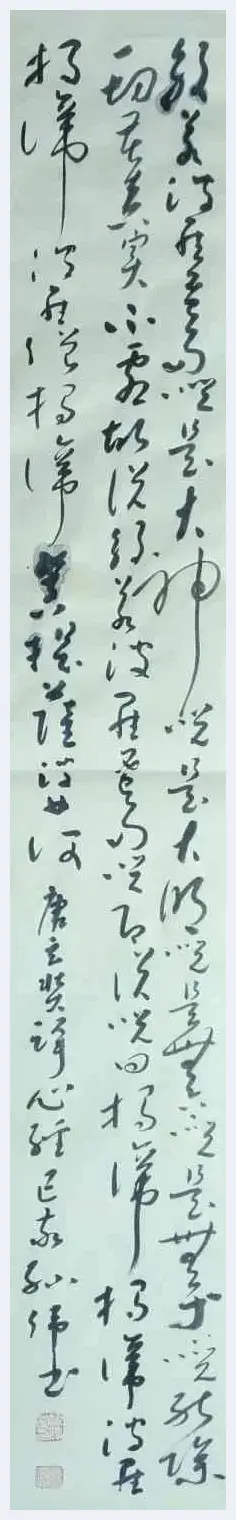 般若波羅蜜多咒是大神咒是大明咒是無上咒是無等等咒能除
一切苦真實不虛故說般若波羅蜜多咒即說咒曰揭諦揭諦波羅
揭諦波羅僧揭諦菩提薩婆訶唐玄奘譯心經己亥孫偉书